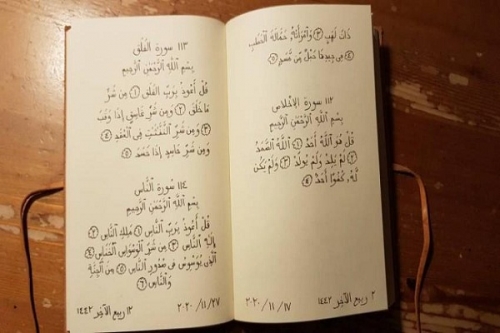 ذَاتَ لَهَبٍ ٣ وَٱمْرَأَتُهُۥ حَمَّالَةَ ٱلْحَطَبِ
٤ فِى جِيدِهَا حَبْلٌ مِّن مَّسَدٍ ٥
١١٢ سورة الإخلاص
بِسْمِ اللَّهِ الرَّحْمَٰنِ الرَّحِيمِ
قُلْ هُوَ ٱللَّهُ أَحَدٌ ١ ٱللَّهُ ٱلصَّمَدُ
٢ لَمْ يَلِدْ وَلَمْ يُولَدْ ٣ وَلَمْ يَكُن
لَّهُۥ كُفُوًا أَحَدٌ ٤
٢ ربيع الآخر ١٤٤٢ ٢٠٢٠/١١/١٧
١١٣ سورة الْفَلَق
بِسْمِ اللَّهِ الرَّحْمَٰنِ الرَّحِيمِ
قُلْ أَعُوذُ بِرَبِّ ٱلْفَلَقِ ١ مِن شَرِّ
مَا خَلَقَ ٢ وَمِن شَرِّ غَاسِقٍ إِذَا وَقَبَ
٣ وَمِن شَرِّ ٱلنَّفَّٰثَٰتِ فِى ٱلْعُقَدِ ٤
وَمِن شَرِّ حَاسِدٍ إِذَا حَسَدَ ٥
١١٤ سورة النَّاس
بِسْمِ اللَّهِ الرَّحْمَٰنِ الرَّحِيمِ
قُلْ أَعُوذُ بِرَبِّ ٱلنَّاسِ ١ مَلِكِ ٱلنَّاسِ ٢
إِلَٰهِ ٱلنَّاسِ ٣ مِن شَرِّ ٱلْوَسْوَاسِ ٱلْخَنَّاسِ ٤
ٱلَّذِى يُوَسْوِسُ فِى صُدُورِ ٱلنَّاسِ ٥ مِنَ ٱلْجِنَّةِ
وَٱلنَّاسِ ٦
١٢ ربيع الآخر ١٤٤٢ ٢٠٢٠/١١/٢٧